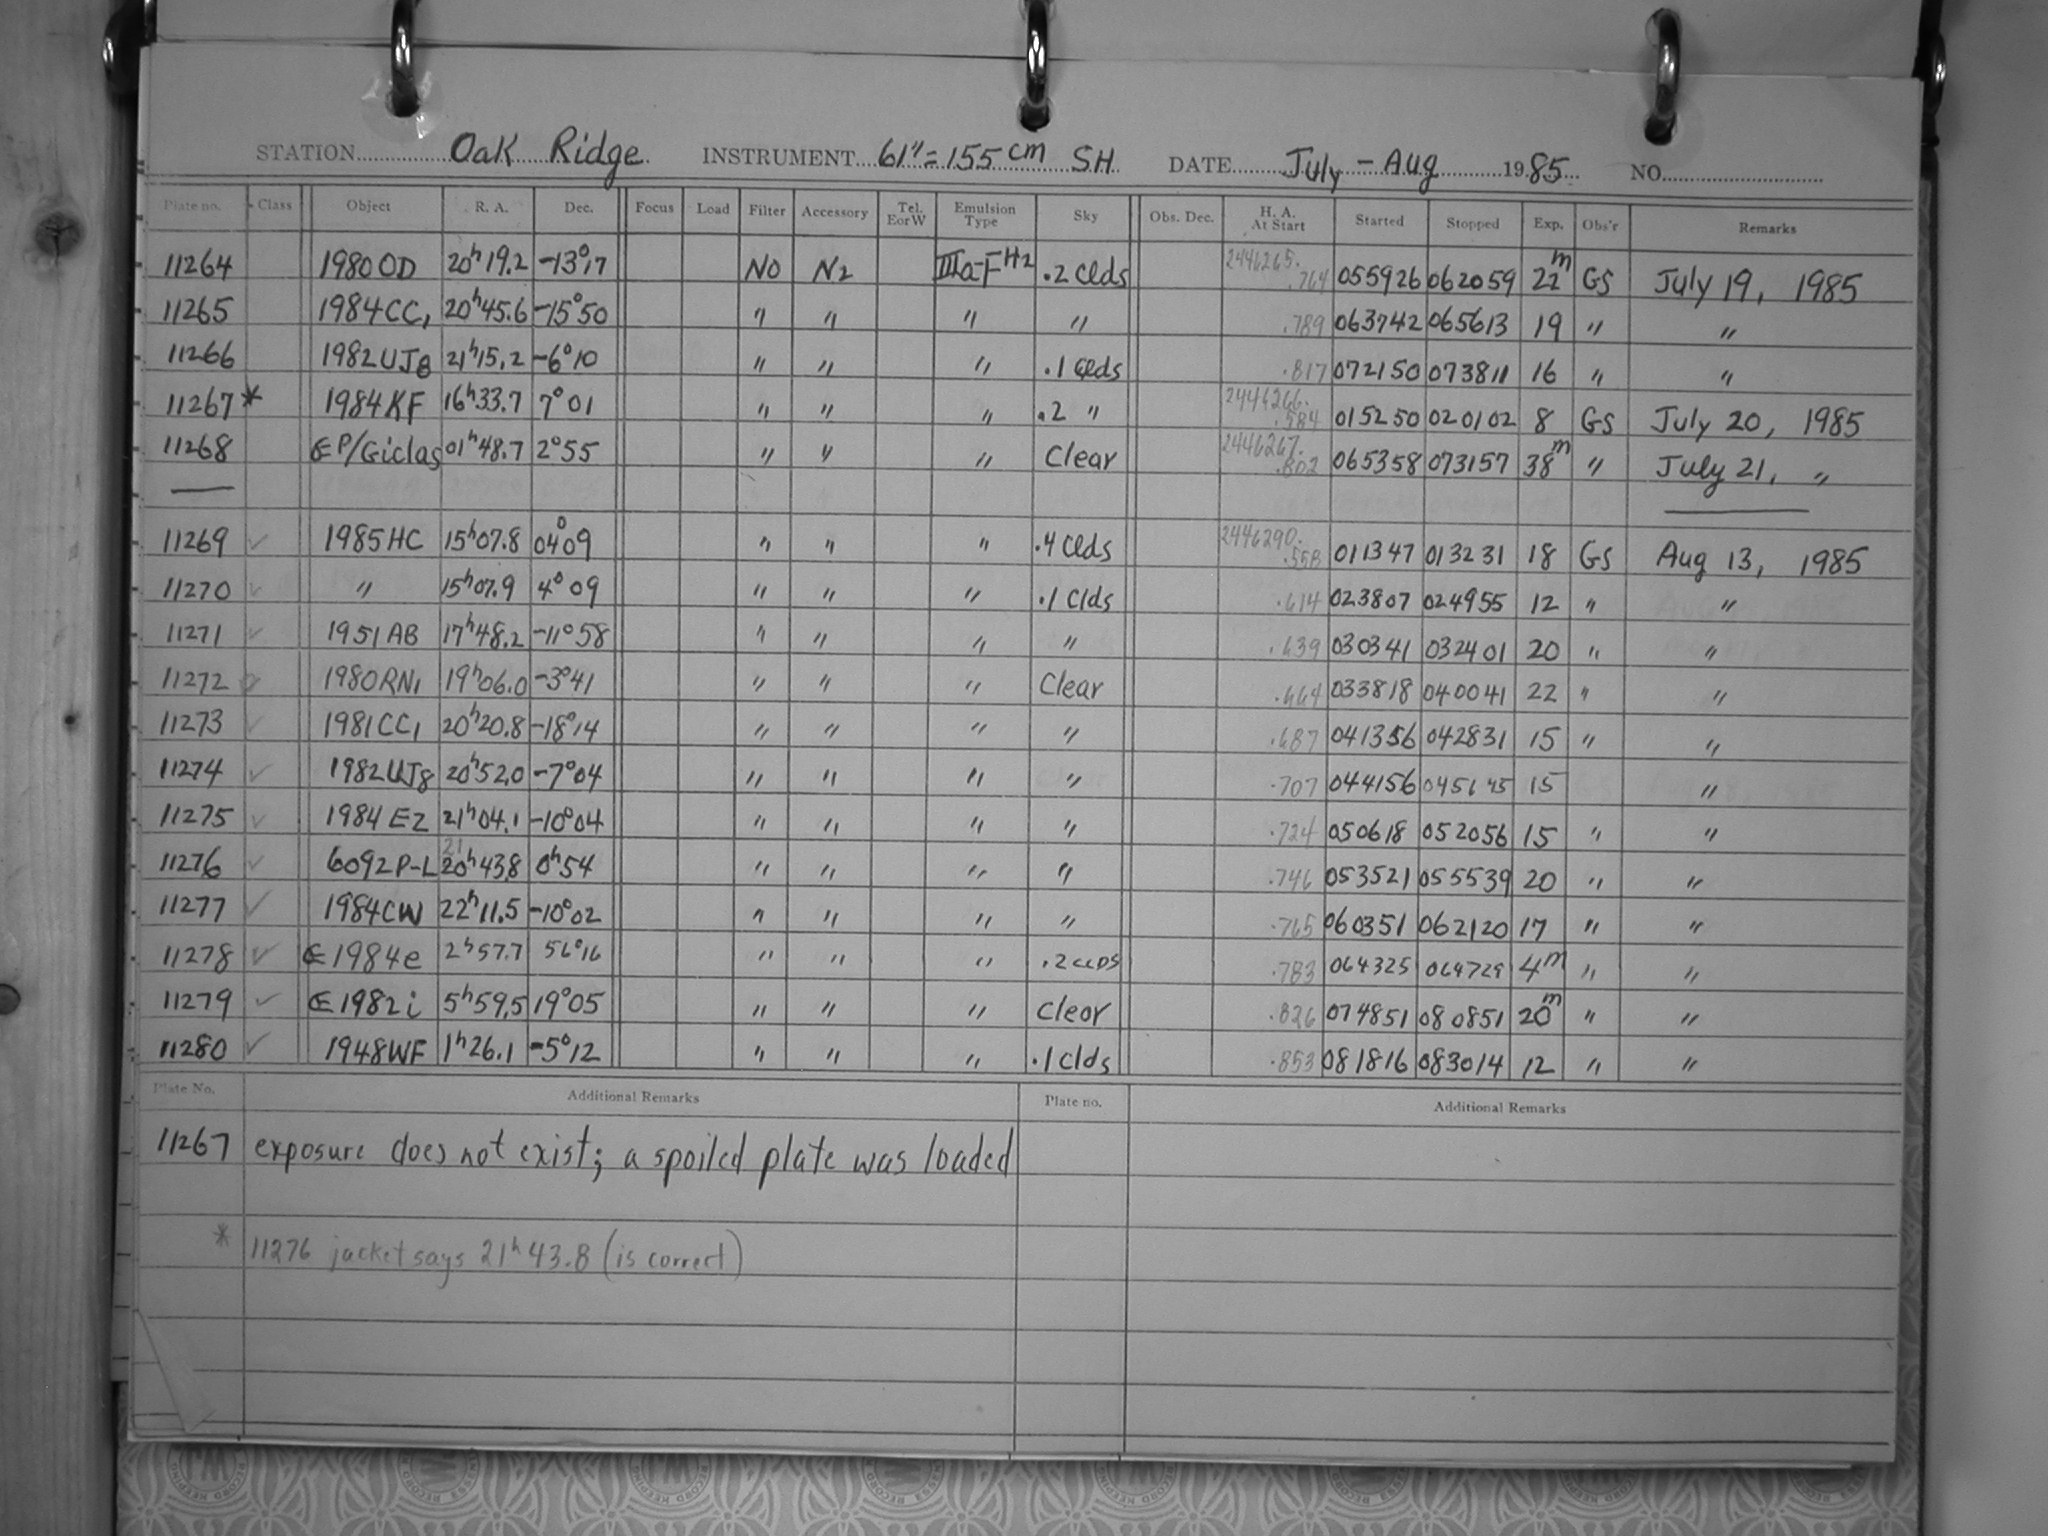 STATION Oak Ridge INSTRUMENT 61"=155cm SH DATE July - Aug 1985 NO.
Plate no. Class Object R. A. Dec. Focus Load Filter Accessory Tel. E or W Emulsion Type Sky Obs. Dec. H. A. At Start Started Stopped Exp. Obs'r Remarks
11264 1980 OD 20h19.2 -13°17 NO N2 IIIa-F H2 .2 Clds 2446265. .764 055926 062059 22m GS July 19, 1985
11265 1984CC1 20h45.6 -15°50 " " " " .789 063742 065613 19 " "
11266 1982UJ8 21h15.2 -6°10 " " " .1 Clds .817 072150 073811 16 " "
11267* 1984KF 16h33.7 7°01 " " " .2 " 2446266. .584 015250 020102 8 GS July 20, 1985
11268 P/Giclas 01h48.7 2°55 " " " Clear 2446267. .802 065358 073157 38m " July 21, "
11269 ✓ 1985HC 15h07.8 04°09 " " " .4 Clds 2446290. .558 011347 013231 18 GS Aug 13, 1985
11270 ✓ " 15h07.9 4°09 " " " .1 Clds .614 023807 024955 12 " "
11271 ✓ 1951AB 17h48.2 -11°58 " " " " .639 030341 032401 20 " "
11272 ✓ 1980RN1 19h06.0 -3°41 " " " Clear .664 033818 040041 22 " "
11273 ✓ 1981CC1 20h20.8 -18°14 " " " " .687 041356 042831 15 " "
11274 ✓ 1982UJ8 20h52.0 -7°04 " " " " .707 044156 045645 15 "
11275 ✓ 1984 EZ 21h04.1 -10°04 " " " " .724 050618 052056 15 " "
11276 ✓ 6092P-L 21 20h43.8 0h54 " " " " .746 053521 055539 20 " "
11277 ✓ 1984CW 22h11.5 -10°02 " " " " .765 060351 062120 17 " "
11278 ✓ 1984e 2h57.7 56°16 " " " .2 CLDS .783 064325 064729 4m " "
11279 ✓ 1982i 5h59.5 19°05 " " " Clear .826 074851 080851 20m " "
11280 ✓ 1948WF 1h26.1 -5°12 " " " .1 Clds .853 081816 083014 12 " "
Plate No. Additional Remarks Plate no. Additional Remarks
11267 exposure does not exist; a spoiled plate was loaded
* 11276 jacket says 21h43.8 (is correct)